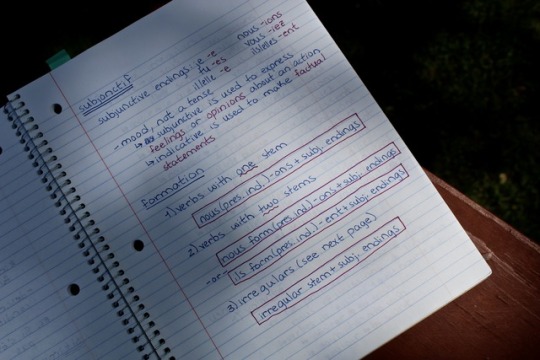 subjonctif
subjunctive endings: je -e nous -ions
tu -es vous -iez
il/elle -e ils/elles -ent
- mood, not a tense
↳ subjunctive is used to express
feelings or opinions about an action
↳ indicative is used to make factual
statements
Formation
1) verbs with one stem
nous (pres. ind.) -ons + subj. endings
2) verbs with two stems
nous form (pres. ind.) -ons + subj. endings
-or- ils form (pres. ind.) -ent + subj. endings
3) irregulars (see next page)
irregular stem + subj. endings